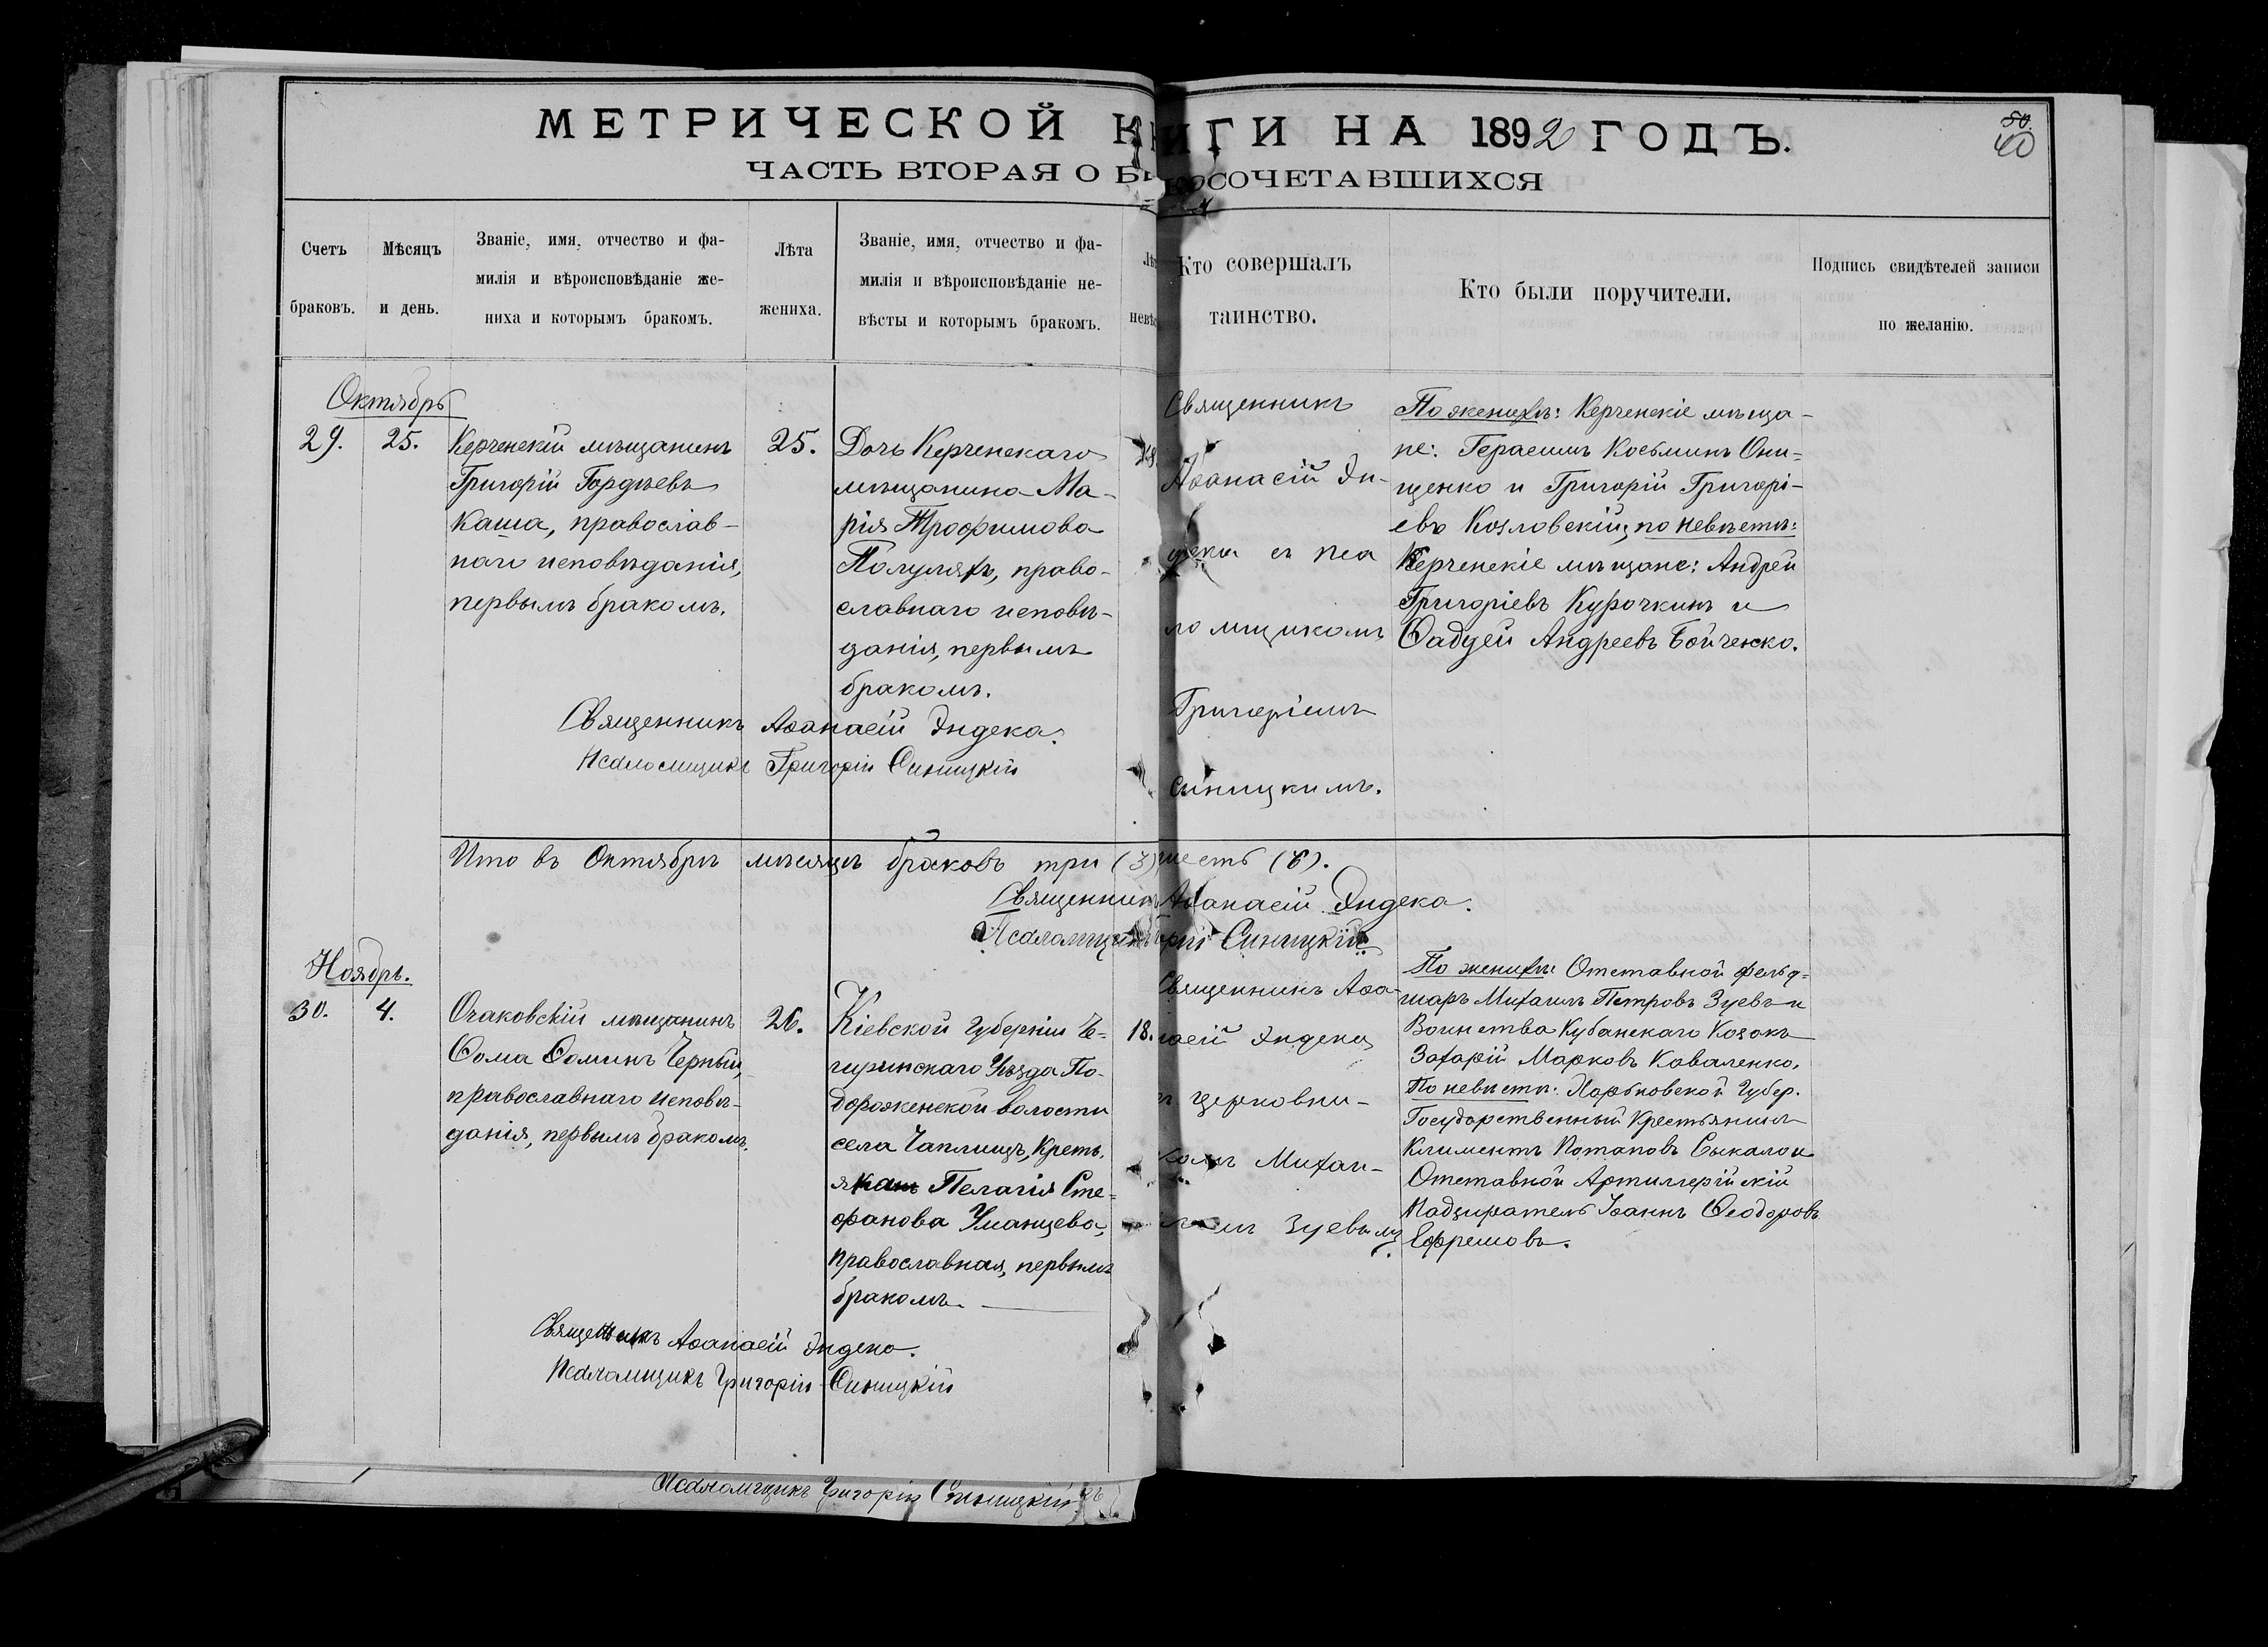 МЕТРИЧЕСКОЙ КНИГИ НА 1892 ГОДЪ.
50.
ЧАСТЬ ВТОРАЯ О БРАКОСОЧЕТАВШИХСЯ
Счетъ браковъ.
Мѣсяцъ и день.
Званіе, имя, отчество и фа-
милія и вѣроисповѣданіе же-
ниха и которымъ бракомъ.
Лѣта жениха.
Званіе, имя, отчество и фа-
милія и вѣроисповѣданіе не-
вѣсты и которымъ бракомъ.
Лѣ
невѣс
Кто совершалъ
таинство.
Кто были поручители.
Подпись свидѣтелей записи
по желанію.
Октябрь
29.
25.
Керченскій мѣщанинъ
Григорій Гордѣевъ
Каша, православ-
наго исповѣданія,
первымъ бракомъ.
25.
Дочь Керченскаго
мѣщанина Ма-
рія Трофимова
Полуляхъ, право-
славнаго исповѣ-
данія, первымъ
бракомъ.
Священникъ
Аѳанасій Эн-
дека съ пса
ломщикомъ
Григоріемъ
Синицкимъ.
По женихѣ: Керченскіе мѣща-
не: Герасимъ Косьминъ Они-
щенко и Григорій Григорі-
евъ Козловскій; по невѣстѣ:
Керченскіе мѣщане: Андрей
Григоріевъ Курочкинъ и
Ѳаддей Андреевъ Бойченко.
Священникъ Аѳанасій Эндека.
Псаломщикъ Григорій Синицкій
Ито въ Октябрѣ мѣсяцѣ браковъ три (3) шесть (6).
Священникъ Аѳанасій Эндека.
Псаломщикъ Григорій Синицкій
Ноябрь.
30.
4.
Очаковскій мѣщанинъ
Ѳома Ѳоминъ Черный,
православнаго исповѣ-
данія, первымъ бракомъ.
26.
Кіевской губерніи Че-
гиринскаго Уѣзда По-
дорожненской волости
села Чаплищъ, Кресть.
янка Пелагія Сте-
фанова Уманцева,
православная, первымъ
бракомъ.
18.
Священникъ Аѳа-
насій Эндека
съ церковни-
комъ Михаи-
ломъ Зуевымъ.
По женихѣ: Отставной фельд-
шаръ Михаилъ Петровъ Зуевъ и
Воинства Кубанскаго Козакъ
Захарій Марковъ Коваленко.
По невѣсте: Харьковской Губер.
Государственный Крестьянинъ
Климентъ Потаповъ Сыкало и
Отставной Артиллерійскій
Надзиратель Іоаннъ Ѳеодоровъ
Ефремовъ.
Священникъ Аѳанасій Эндека.
Псаломщикъ Григорій Синицкій
Псаломщикъ Григорій Синицкій